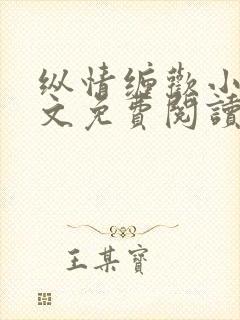 纵情缠歡小
文免費閱讀
王某寶